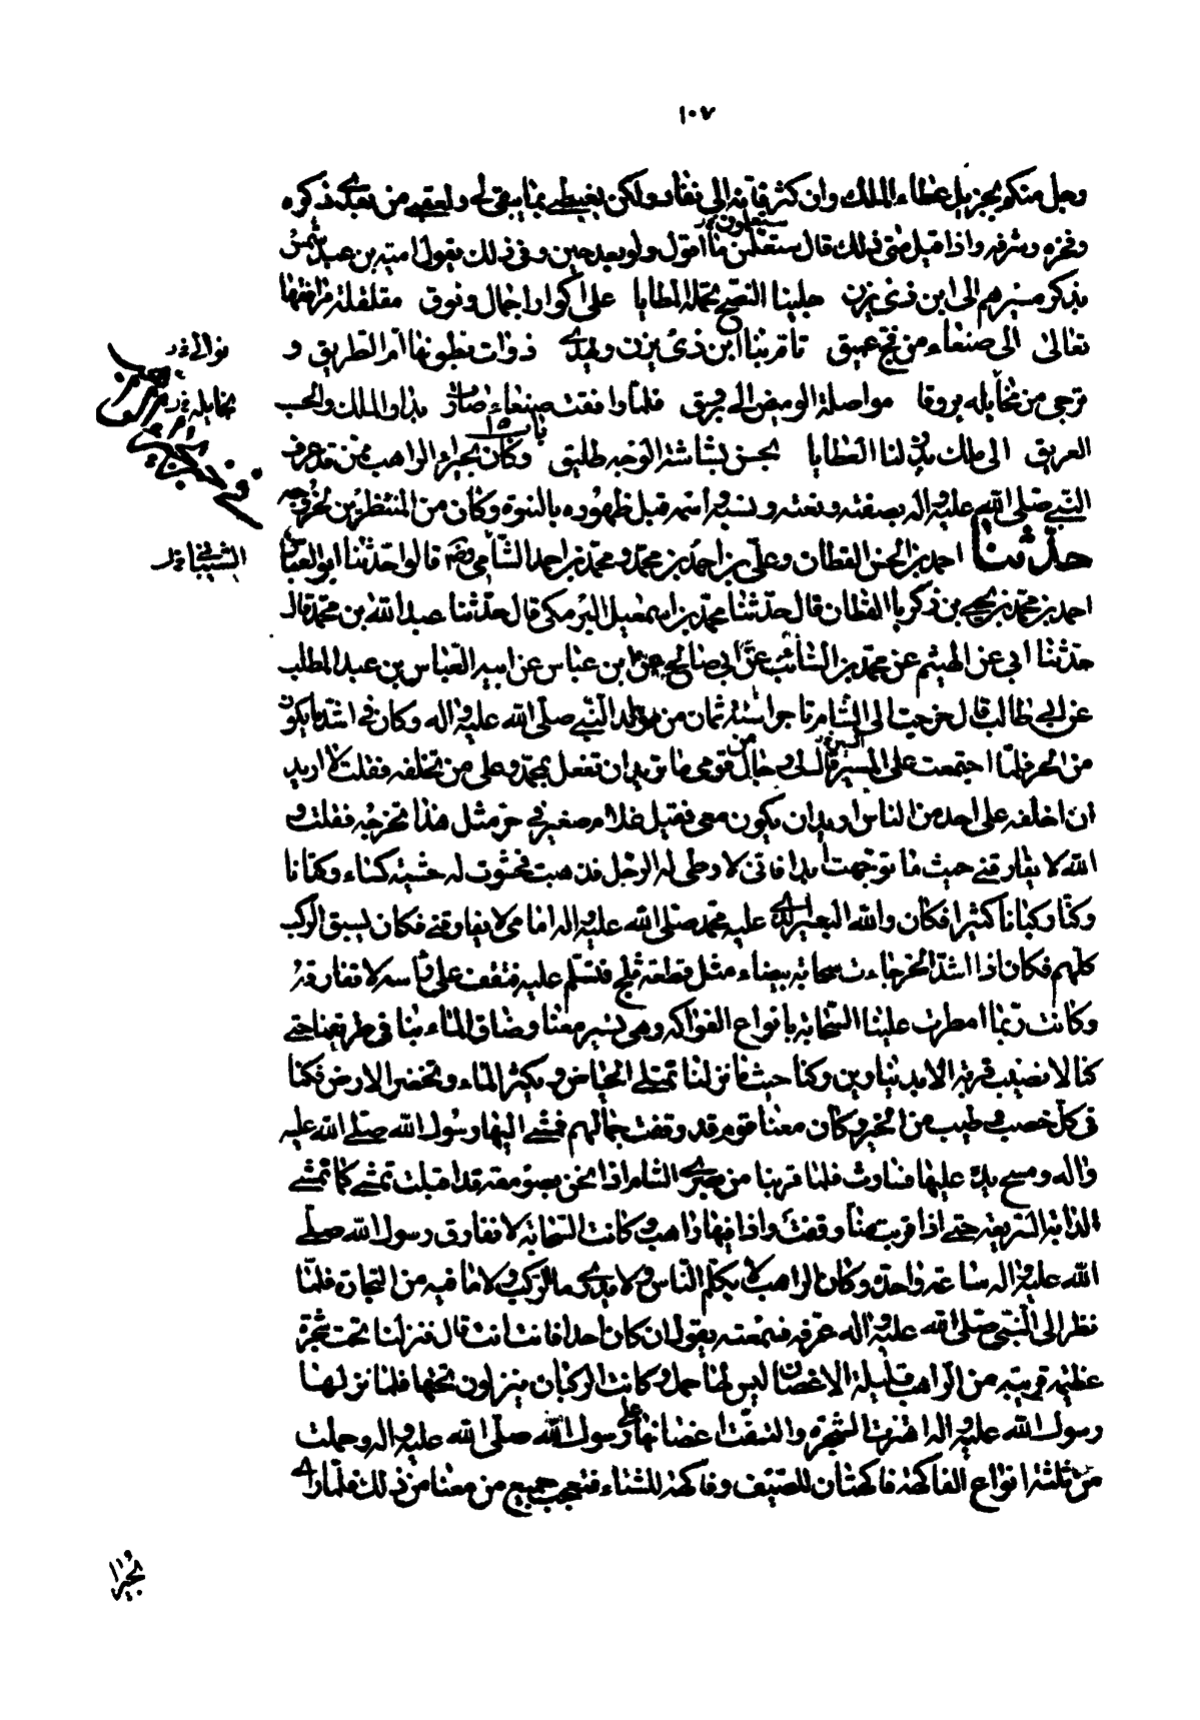 ١٠٧
رجل منكم بجزيل عطاء الملك وان كثر فانه الى نفاد ولكن يغبطني بما يبقى لي ولعقبي من بعدي ذكره
وفخره وشرفه واذا قيل متى ذلك قال ستعلمن ما اقول ولو بعد حين وفي ذلك يقول امية بن عبد شمس
يذكر مسيرهم الى ابن ذي يزن جلبنا النصح تحمله المطايا على اكوار اجمال ونوق مغلغلة مراتعها
تعالى الى صنعاء من فج عميق تأم بنا ابن ذي يزن ويهدي ذوات بطونها ام الطريق و
تزجي من مخايله بروقا مواصلة الوميض الى بروق فلما وافقت صنعاء صارت بدار الملك والحسب
العريق الى ملك يدر لنا العطايا بحسن بشاشة الوجه طليق وكان بحيراء الراهب ممن قد عرف
النبي صلى الله عليه واله بصفته ونعته ونسبه واسمه قبل ظهوره بالنبوة وكان من المنتظرين لخروجه
حدثنا احمد بن الحسن القطان وعلي بن احمد بن محمد ومحمد بن احمد الشامي رضي قالوا حدثنا ابو العباس
احمد بن محمد بن يحيى بن زكريا القطان قال حدثنا محمد بن اسمعيل البرمكي قال حدثنا عبد الله بن محمد قال
حدثنا ابي عن الهيثم عن محمد بن السائب عن ابي صالح عن ابن عباس عن ابيه العباس بن عبد المطلب
عن ابي طالب قال خرجت الى الشام تاجرا سنة ثمان من مولد النبي صلى الله عليه واله وكان في اشد ما يكون
من الحر فلما اجتمعت على المسير قال لي رجال من قومي ما تريد ان تفعل بمحمد وعلى من تخلفه فقلت لا اريد
ان اخلفه على احد من الناس اريد ان يكون معي فقيل غلام صغير في حر مثل هذا تخرجه فقلت و
الله لا يفارقني حيث ما توجهت ابدا فاني لاوطى له الرحل فذهبت فحشوت له حشية كساء وكتانا
وكنا ركبانا كثيرا فكان والله البعير الذي عليه محمد صلى الله عليه واله امامي لا يفارقني فكان يسبق الركب
كلهم فكان اذا اشتد الحر جاءت سحابة بيضاء مثل قطعة ثلج فتسلم عليه فتقف على راسه لا تفارقه
وكانت ربما امطرت علينا السحابة بانواع الفواكه وهي تسير معنا وضاق الماء بنا في طريقنا حتى
كنا لا نصيب قربة الا بدينارين وكنا حيث ما نزلنا تمتلي الحياض ويكثر الماء وتخضر الارض فكنا
في كل خصب وطيب من الخير وكان معنا قوم قد وقفت جمالهم فمشى اليها رسول الله صلى الله عليه
واله ومسح يده عليها فسارت فلما قربنا من بصرى الشام اذا نحن بصومعة قد اقبلت تمشي كما تمشي
الدابة السريعة حتى اذا قربت منا وقفت واذا فيها راهب وكانت السحابة لا تفارق رسول الله صلى
الله عليه واله ساعة واحدة وكان الراهب لا يكلم الناس ولا يدري ما الركب ولا ما فيه من التجارة فلما
نظر الى النبي صلى الله عليه واله عرفه فسمعته يقول ان كان احد فانت انت قال فنزلنا تحت شجرة
عظيمة قريبة من الراهب قليلة الاغصان ليس لها حمل وكانت الركبان ينزلون تحتها فلما نزلها
رسول الله عليه واله اهتزت الشجرة والتفت اغصانها على رسول الله صلى الله عليه واله وحملت
من ثلثة انواع الفاكهة فاكهتان للصيف وفاكهة للشتاء فتعجب جميع من معنا من ذلك فلما راى
بحيرا